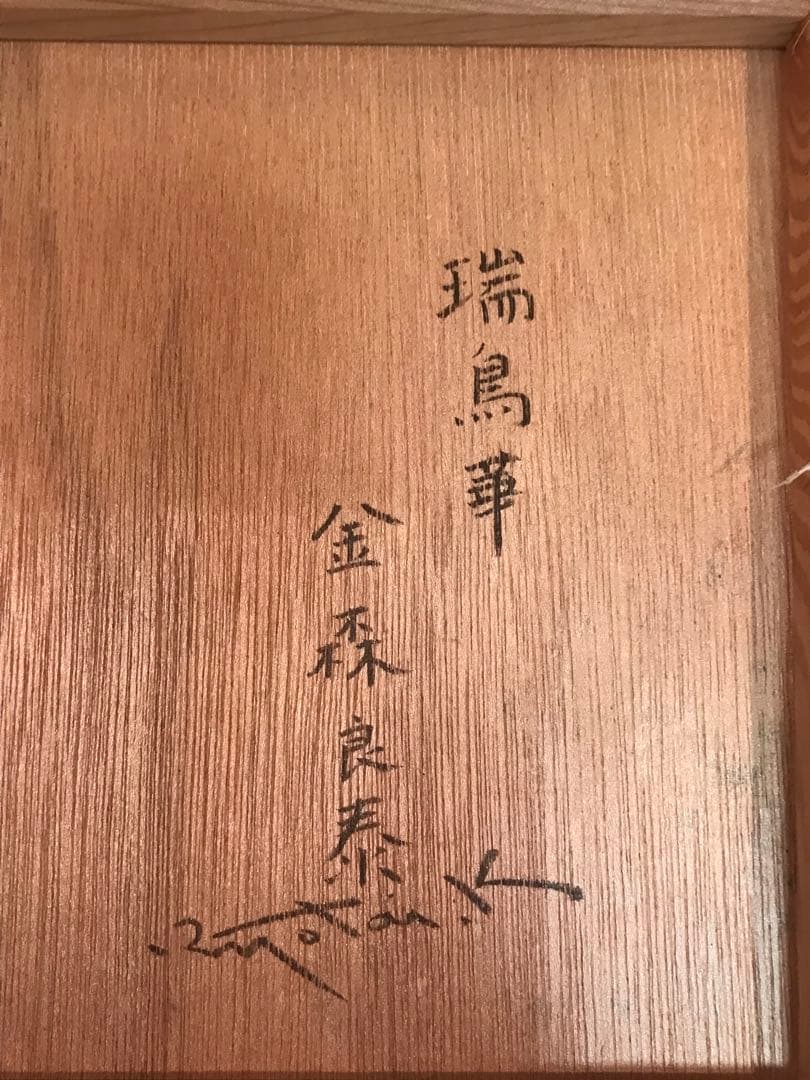 瑞鳥華
金森良泰